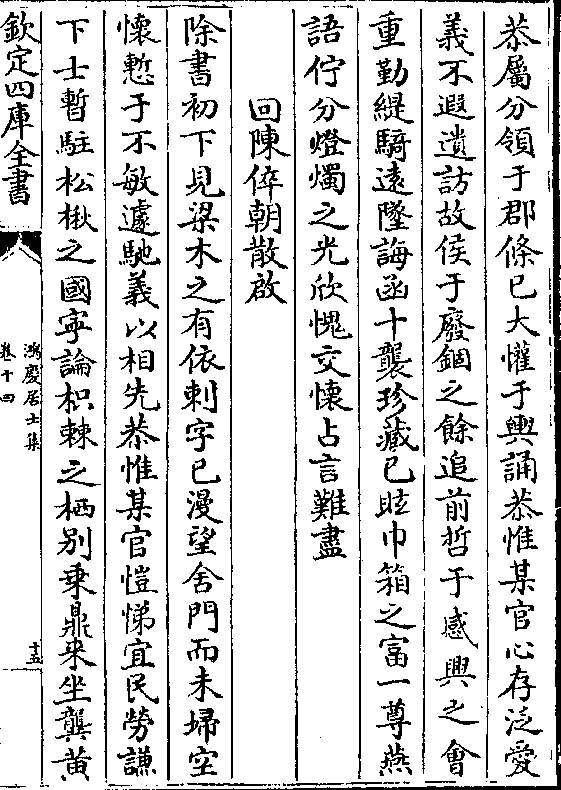 恭屬分領于郡條已大懽于輿誦恭惟某官心存泛愛
義不遐遺訪故侯于廢錮之餘追前哲于感興之會
重勤緹騎遠墜誨函十襲珍藏已眩巾箱之富一尊燕
語佇分燈燭之光欣愧交懷占言難盡
回陳倅朝散啟
除書初下見梁木之有依刺字已漫望舍門而未埽空
懷慙于不敏遽馳義以相先恭惟某官愷悌宜民勞謙
下士暫駐松楸之國寧論枳棘之栖別乗鼎来坐龔黄
欽定四庫全書
鴻慶居士集
卷十四
十五